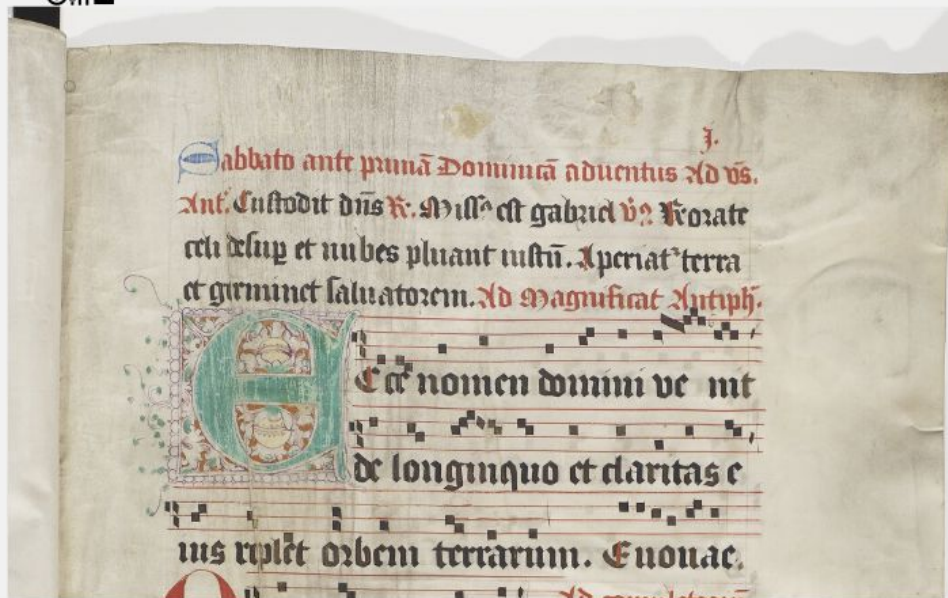 J.
Sabbato ante primā Dominicā aduentus Ad vs̄.
Ant. Custodit dn̄s R. Missᵒ est gabriel v̄ꝰ Rorate
celi desuꝑ et nubes pluant iustū. Aperiatᵘʳ terra
et girminet saluatorem. Ad Magnificat Antiph̄.
ECce nomen domini ve nit
de longinquo et claritas e
ius replet orbem terrarum. Euouae.
Ad